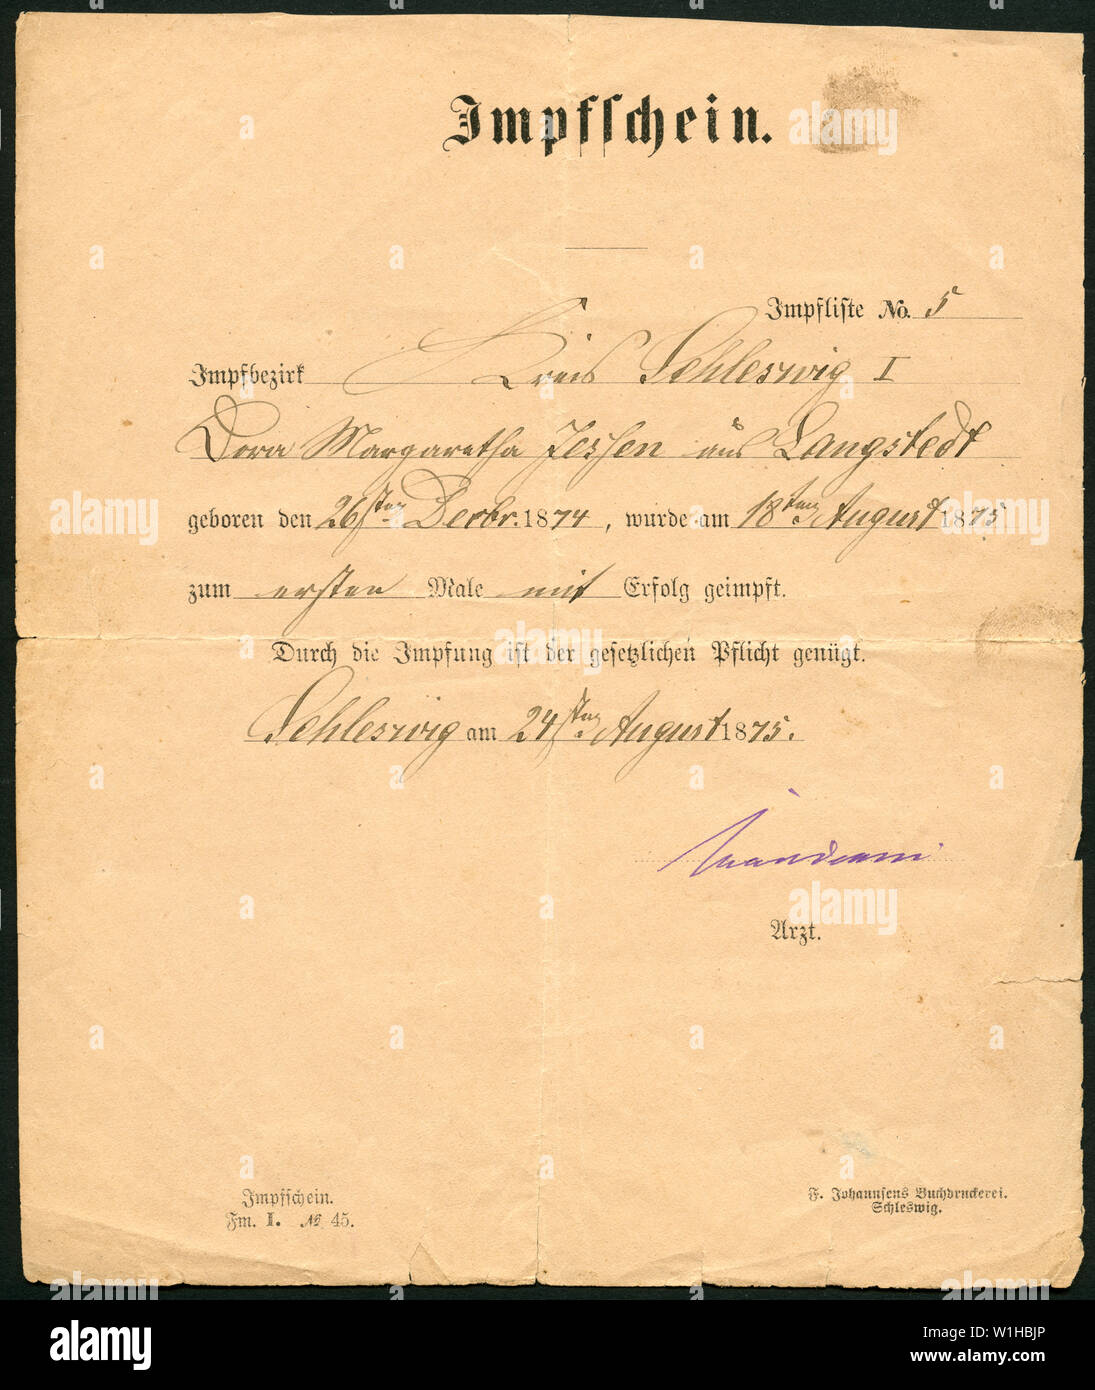 Impfschein.
Impfliste No. 5
Impfbezirk Kreis Schleswig I
Dora Margaretha Jessen aus Langstedt
geboren den 26sten Decbr. 1874, wurde am 18ten August 1875
zum ersten Male mit Erfolg geimpft.
Durch die Impfung ist der gesetzlichen Pflicht genügt.
Schleswig am 24sten August 1875.
Arzt.
Impfschein.
Fm. I. № 45.
F. Johannsens Buchdruckerei.
Schleswig.
alamy
alamy
alamy
alamy
alamy
alamy
alamy
alamy
Image ID: W1HBJP
www.alamy.com